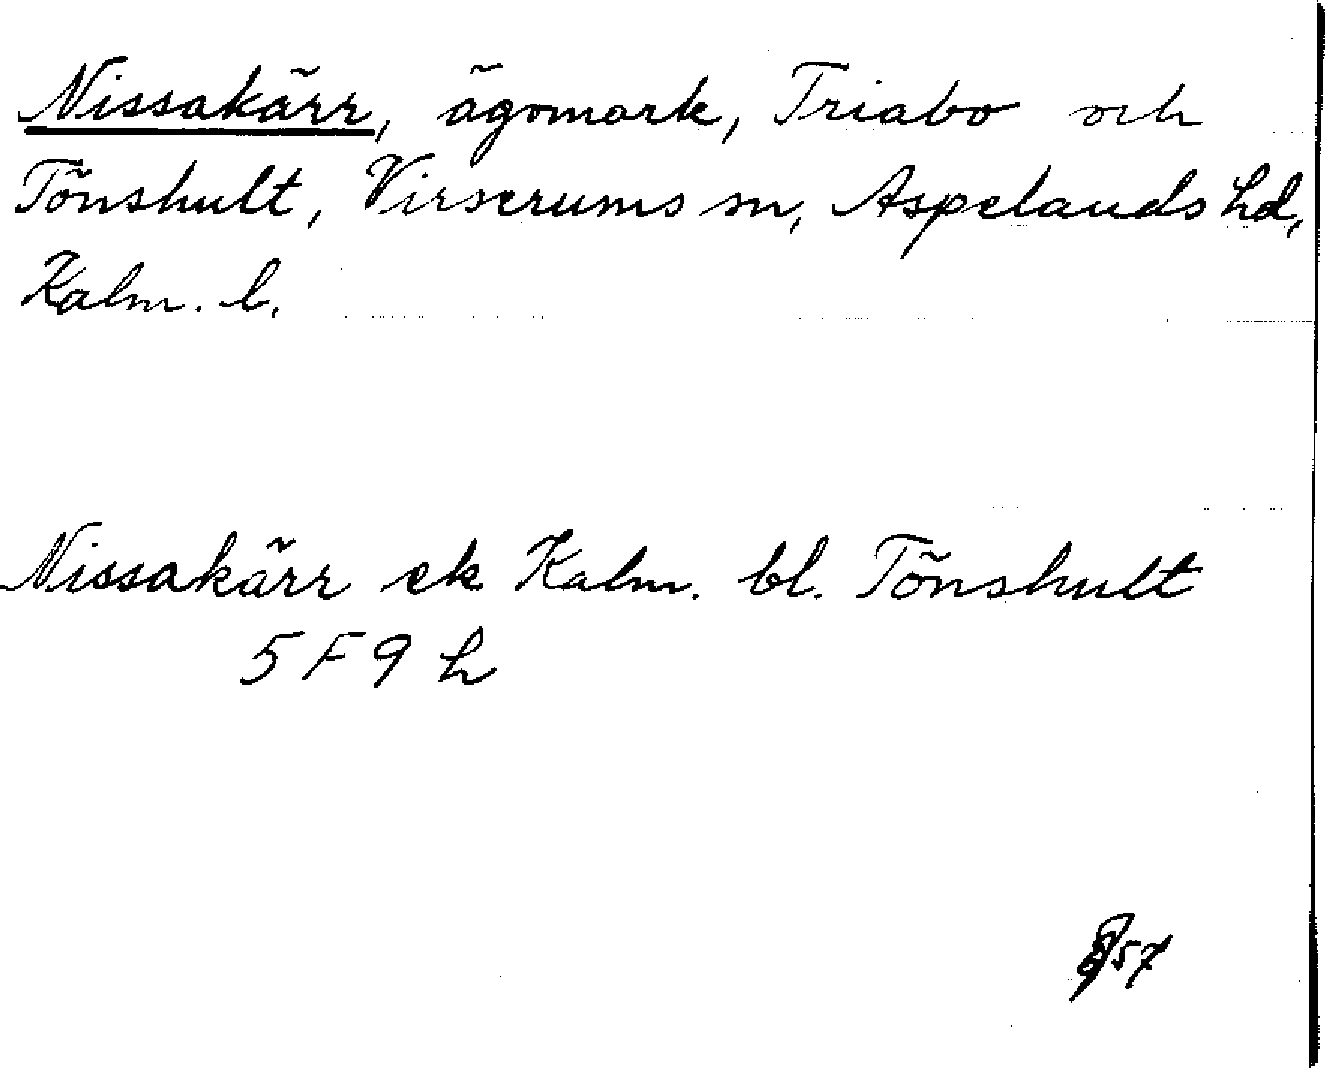 Nissakärr, ägomark, Triabo och
Tönshult, Virserums sn, Aspelands hd,
Kalm. l.
Nissakärr ek Kalm. bl. Tönshult
5 F 9 h
57